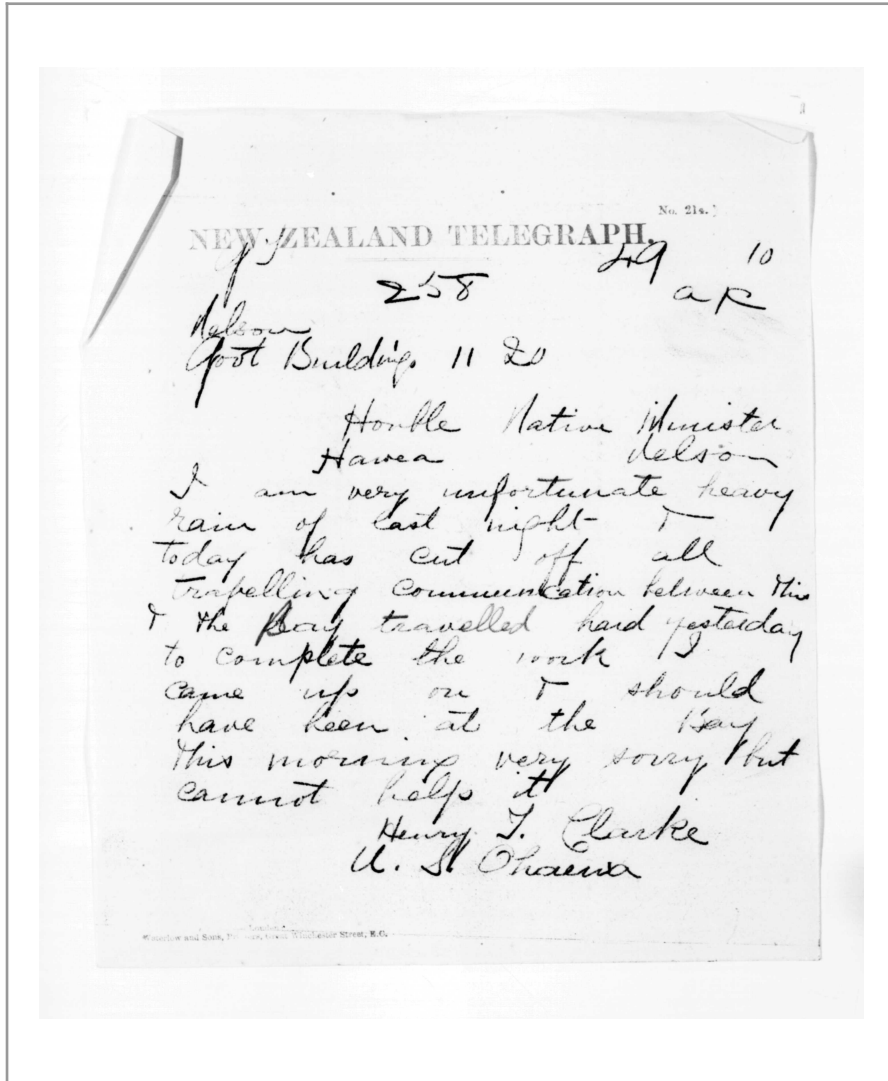 No. 214.)
NEW ZEALAND TELEGRAPH.
49 10
258 a R
Nelson
Govt Buildings 11 20
Honble Native Minister
Hawea Nelson
I am very unfortunate heavy
rain of last night &
today has cut off all
travelling communication between this
& the Bay travelled hard yesterday
to complete the work I
came up on & should
have been at the Bay
this morning very sorry but
cannot help it
Henry T. Clarke
U. S. Ohaewa
London.
Waterlow and Sons, Printers, Great Winchester Street, E.C.